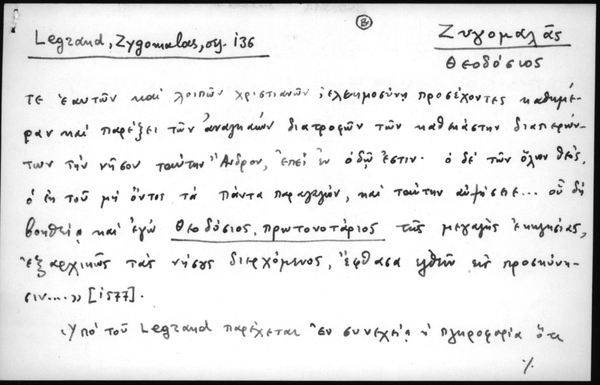 Β
Legrand, Zygomalas, σσ. 136
Ζυγομαλᾶς
Θεοδόσιος
τε ἑαυτῶν καὶ λοιπῶν χριστιανῶν ἐλεημοσύνῃ προσέχοντες καθημέ-
ραν καὶ παρέξει τῶν ἀναγκαίων διατροφῶν τῶν καθεκάστην διαπερών-
των τὴν νῆσον ταύτην Ἄνδρον, ἐπεὶ ἐν ὁδῷ ἐστιν. ὁ δὲ τῶν ὅλων θεός,
ὁ ἐκ τοῦ μὴ ὄντος τὰ πάντα παραγαγών, καὶ ταύτην αὐξήσειε... οὗ δὴ
βοηθείᾳ καὶ ἐγὼ Θεοδόσιος πρωτονοτάριος τῆς μεγάλης ἐκκλησίας,
ἐξαρχικῶς τὰς νήσους διερχόμενος, ἔφθασα ἐλθεῖν εἰς προσκύνη-
σιν...» [1577].
Ὑπὸ τοῦ Legrand παρέχεται ἐν συνεχείᾳ ἡ πληροφορία ὅτι
./.